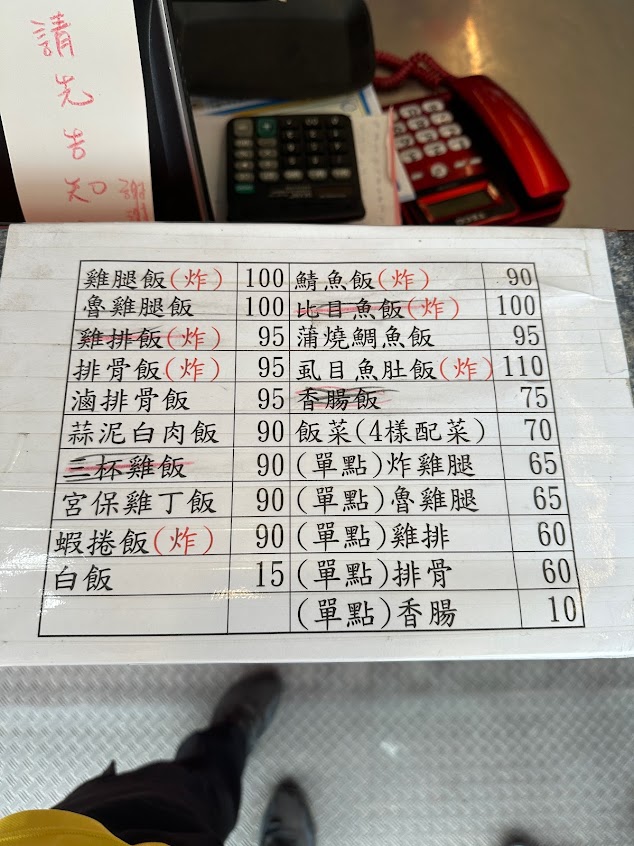 請先告知
謝謝
雞腿飯(炸) 100 鯖魚飯(炸) 90
魯雞腿飯 100 比目魚飯(炸) 100
雞排飯(炸) 95 蒲燒鯛魚飯 95
排骨飯(炸) 95 虱目魚肚飯(炸) 110
滷排骨飯 95 香腸飯 75
蒜泥白肉飯 90 飯菜(4樣配菜) 70
三杯雞飯 90 (單點)炸雞腿 65
宮保雞丁飯 90 (單點)魯雞腿 65
蝦捲飯(炸) 90 (單點)雞排 60
白飯 15 (單點)排骨 60
(單點)香腸 10